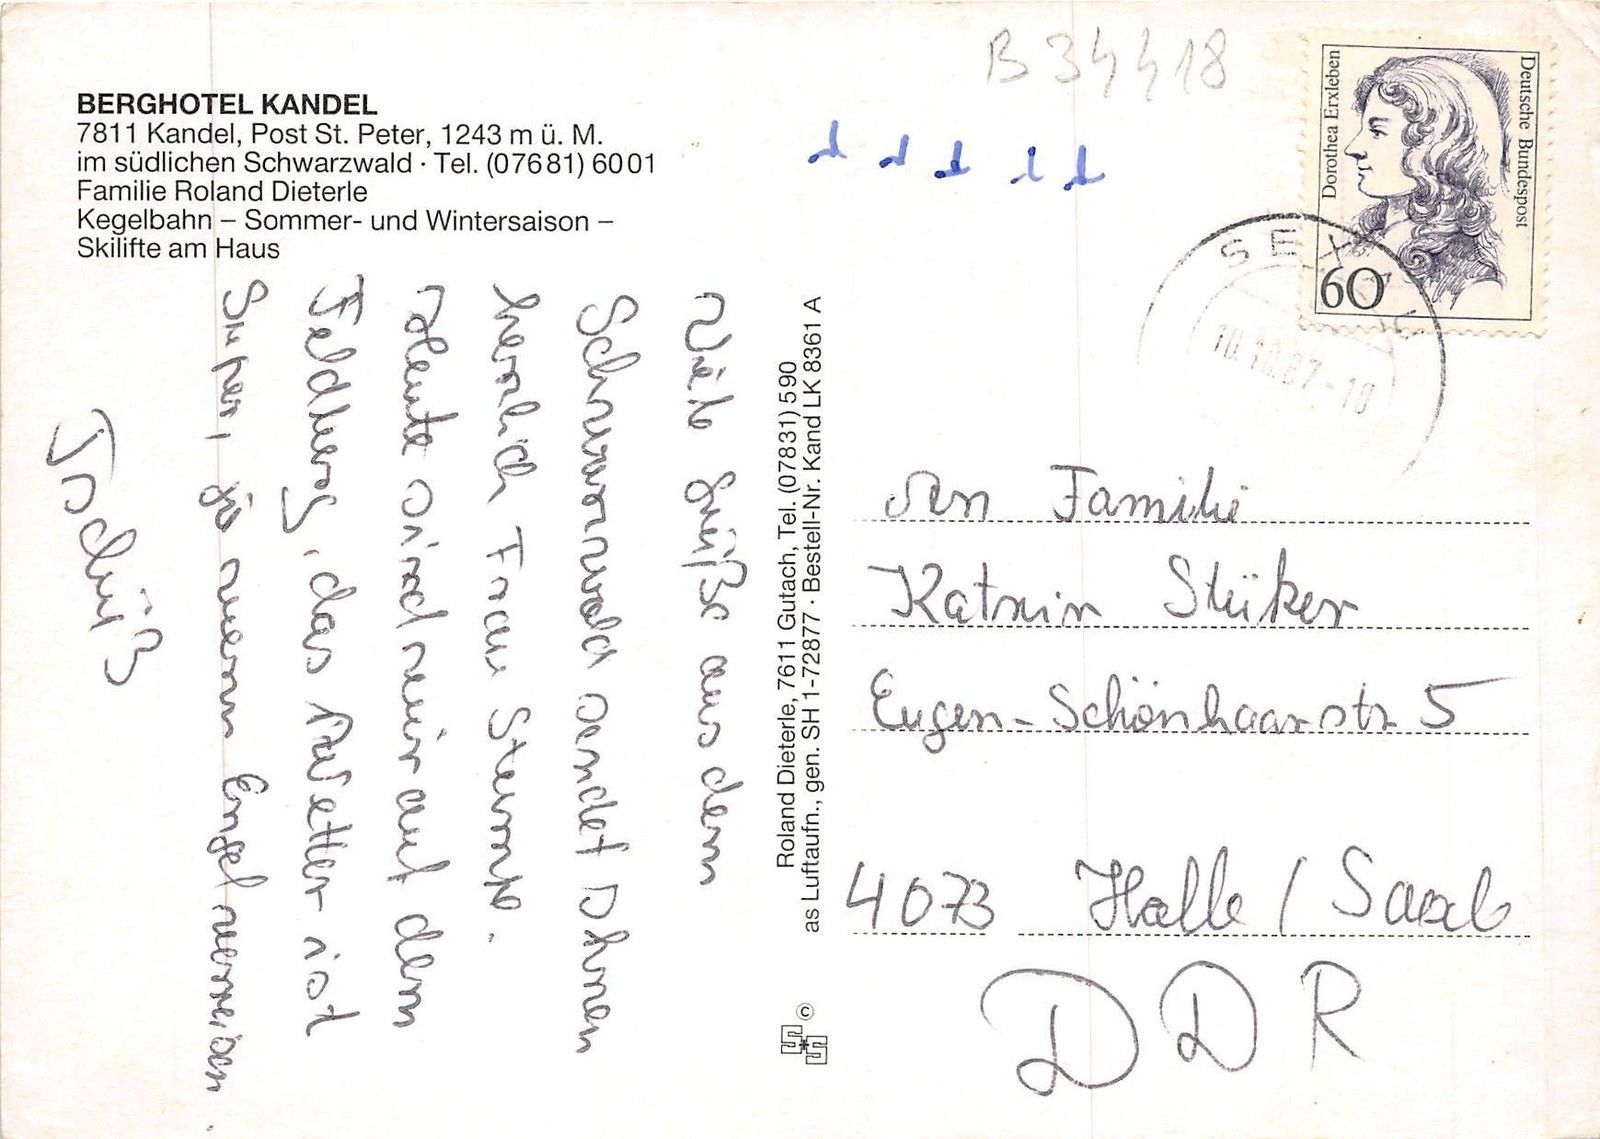 BERGHOTEL KANDEL
7811 Kandel, Post St. Peter, 1243 m ü. M.
im südlichen Schwarzwald · Tel. (07681) 6001
Familie Roland Dieterle
Kegelbahn – Sommer- und Wintersaison –
Skilifte am Haus
Viele Grüße aus dem
Schwarzwald sendet Ihnen
herzlich Frau Stumpe.
Heute sind wir auf dem
Feldberg, das Wetter ist
Super, ja wenn Engel verreisen.
Tschüß
Roland Dieterle, 7611 Gutach, Tel. (07831) 590
as Luftaufn., gen. SH 1-72877 · Bestell-Nr. Kand LK 8361 A
©
S+S
B 34418
Deutsche Bundespost
Dorothea Erxleben
60
SEX
10.10.87-10
An Familie
Katrin Stüker
Eugen-Schönhaarstr 5
4073 Halle / Saale
DDR